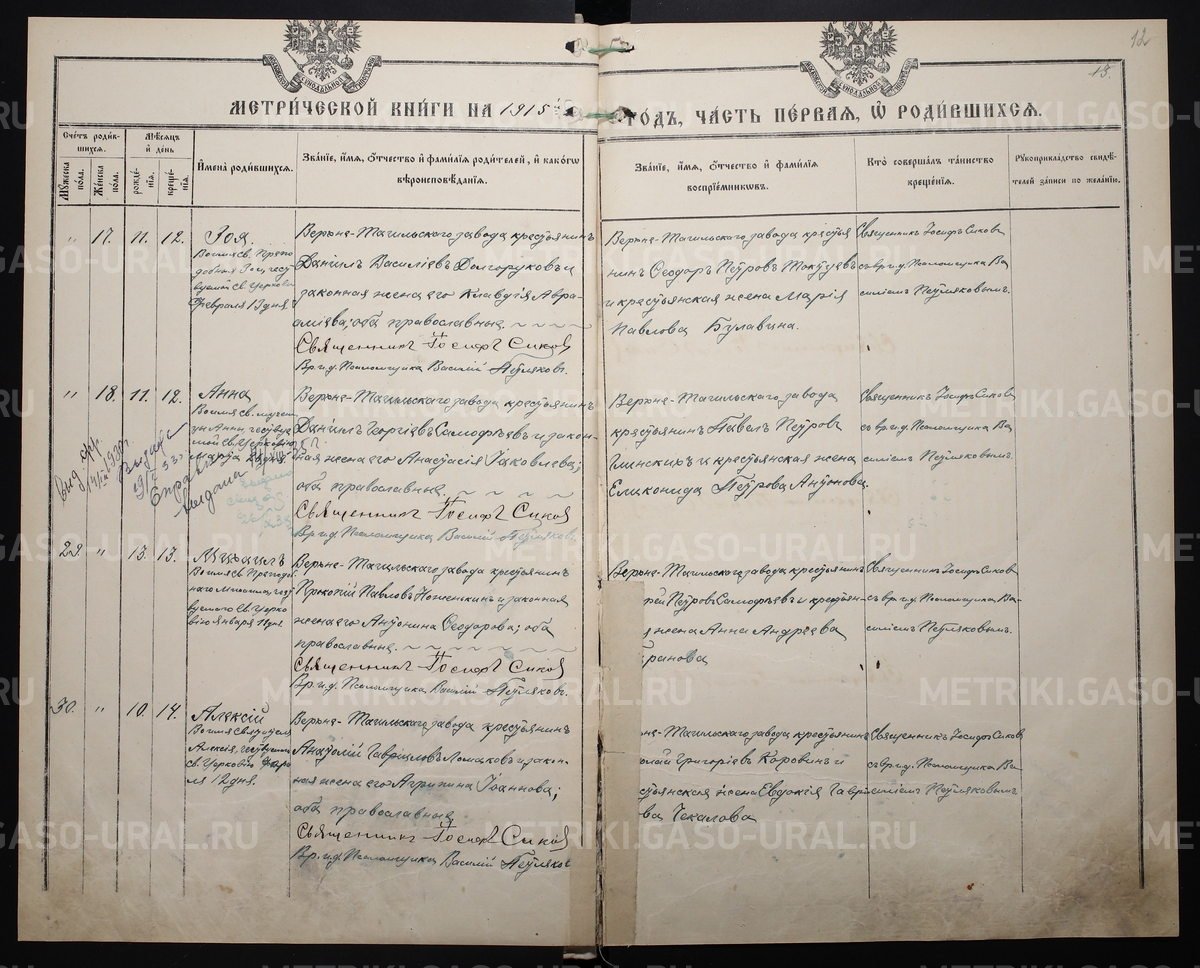 12
13.
МЕТРИ́ЧЕСКОЙ КНИ́ГИ НА 1915
ГО́ДЪ, ЧА́СТЬ ПЕ́РВАЯ, Ѡ РОДИ́ВШИХСѦ.
Сче́тъ роди́вшихся.
Мꙋ́жеска по́ла.
Же́нска по́ла.
Мѣ́сяцъ и҆ де́нь
рожде́нія.
креще́нія.
И҆мена̀ роди́вшихся.
Зва́ніе, и҆́мя, ѻ҆́тчество и҆ фами́лія роди́телей, и҆ како́гѡ
вѣроисповѣ́данія.
Зва́ніе, и҆́мя, ѻ҆́тчество и҆ фами́лія
воспріе́мниковъ.
Кто̀ соверша́лъ та́инство
креще́нія.
Рꙋкоприкла́дство свидѣ́телей за́писи по жела́нію.
" 17. 11. 12. Зоя
Во имя св. Преподобной Зои, чествуемой Св. Церковію
Февраля 13 дня
Верхне-Тагильскаго завода крестьянинъ
Даніилъ Василіевъ Долгоруковъ и
законная жена его Клавдія Авра-
аміева; оба православные.
Священникъ Іосифъ Сиков
Вр. и. д. Псаломщика Василій Петуляковъ.
Верхне-Тагильскаго завода крестья
нинъ Ѳеодоръ Петровъ
и крестьянская жена Марія
Павлова Булавина.
Священникъ Іосифъ Сиковъ
съ вр. и. д. Псаломщика Ва
силіемъ Петуляковымъ.
" 18. 11. 12. Анна
Верхне-Тагильскаго завода крестьянинъ
Даніилъ Георгіевъ Самофѣевъ и закон-
ная жена его Анастасія Іаковлева;
оба православные.
Священникъ Іосифъ Сиков
Вр. и. д. Псаломщика Василій Петуляковъ.
Верхне-Тагильскаго завода
крестьянинъ Павелъ Петровъ
Глинскихъ и крестьянская жена
Еликонида Петрова Антонова.
Священникъ Іосифъ Сиковъ
съ вр. и. д. Псаломщика Ва
силіемъ Петуляковымъ.
29. " 13. 13. Михаилъ
Верхне-Тагильскаго завода крестьянинъ
Прокопій Павловъ Ноженкинъ и законная
жена его Антонина Ѳеодорова; оба
православные.
Священникъ Іосифъ Сиков
Вр. и. д. Псаломщика Василій Петуляковъ.
Верхне-Тагильскаго завода крестьянинъ
рей Петровъ Самофѣевъ и крестьян-
жена Анна Андреева
ранова
Священникъ Іосифъ Сиковъ
съ вр. и. д. Псаломщика Ва-
силіемъ Петуляковымъ.
30. " 10. 14. Алексій
Во имя Святителя
Алексія, чествуемаго
Св. Церковію Февра
ля 12 дня.
Верхне-Тагильскаго завода крестьянинъ
Анатолій Гавріиловъ Ломаковъ и закон-
ная жена его Агрипина Іоаннова;
оба православные
Священникъ Іосифъ Сиков
Вр. и. д. Псаломщика Василій Петуляков
не-Тагильскаго завода крестьянинъ
олай Григоріевъ Коровинъ и
стьянская жена Евдокія Гаври
ва Чекалова
Священникъ Іосифъ Сиковъ
съ вр. и. д. Псаломщика Ва
силіемъ Петуляковымъ.
METRIKI.GASO-URAL.RU